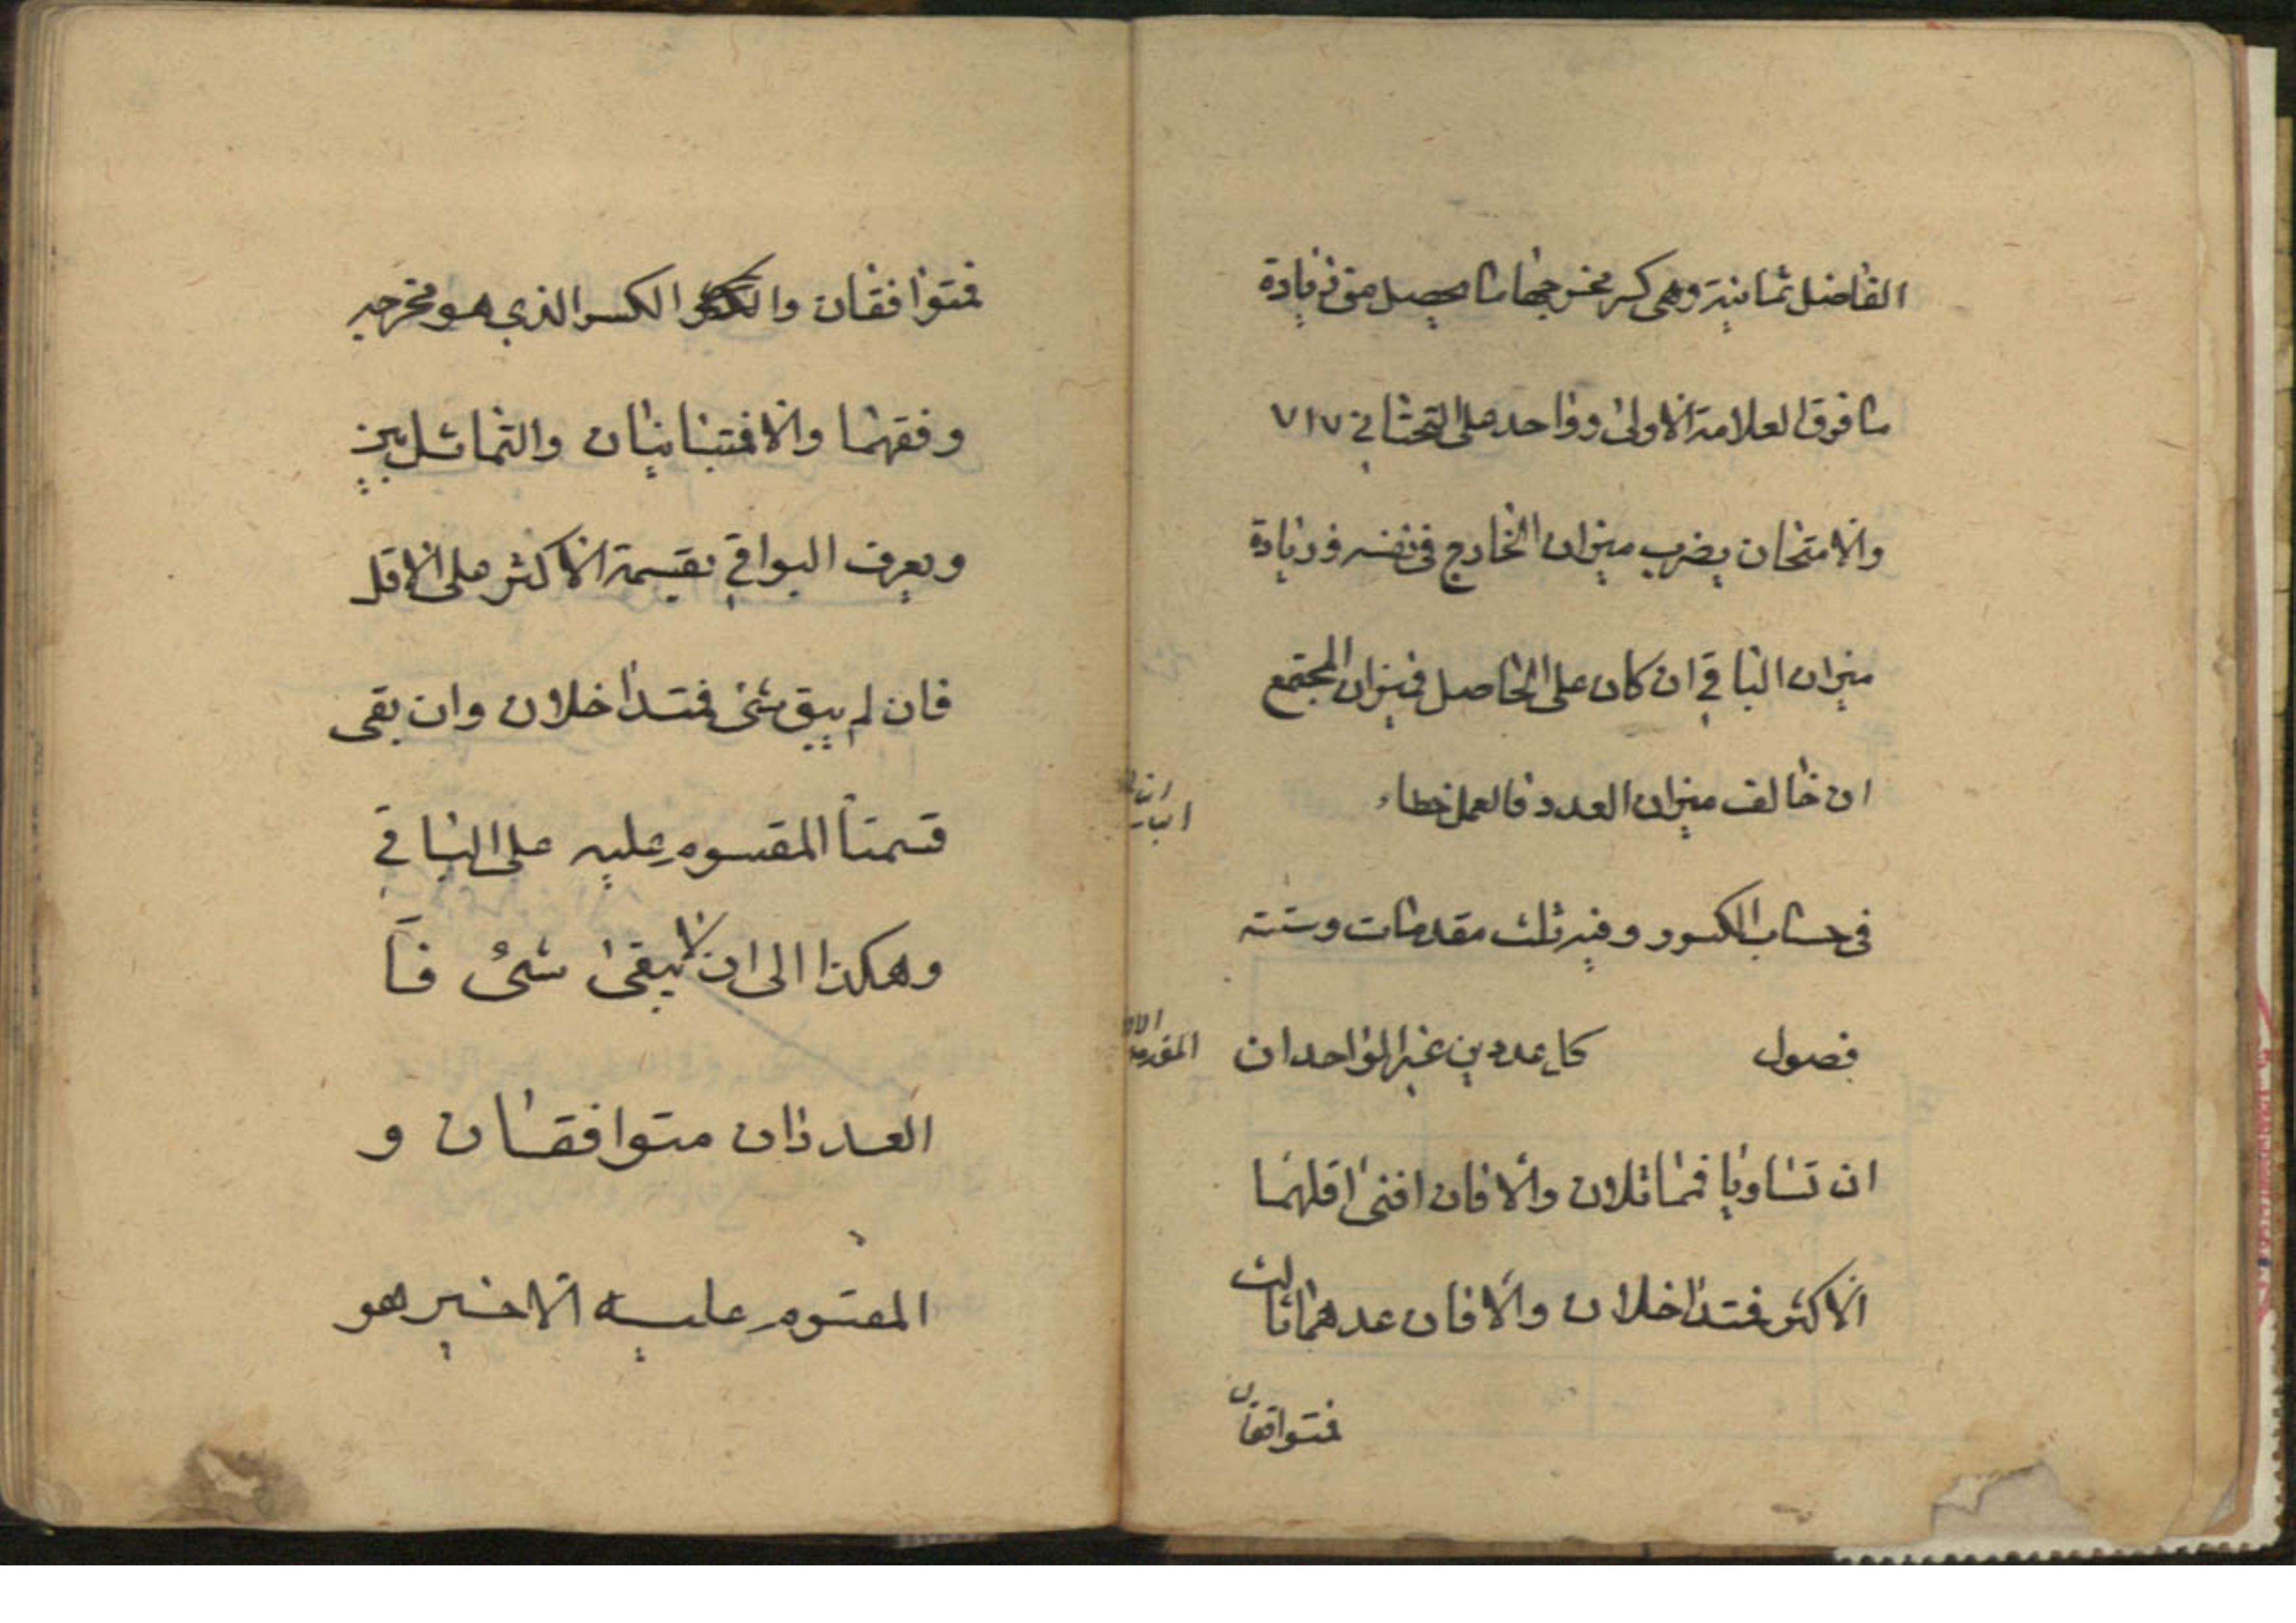 الفاضل ثمانية وهى كسر مخرجها ما يحصل من زيادة
ما فوق العلامة الاولى وواحد على التحتانى ٧١٧
والامتحان بضرب ميزان الخارج فى نفسه وزيادة
ميزان الباقي ان كان على الحاصل فميزان المجتمع
ان خالف ميزان العدد فالعمل خطاء
فى حساب الكسور وفيه ثلث مقدمات وستة
فصول كل عددين غير الواحد ان
ان تساويا فمتماثلان والا فان افنى اقلهما
الاكثر فتداخلان والا فان عدهما ثالث
فمتوافقان
فمتوافقان والكسر الذي هو مخرجه
وفقهما والا فمتباينان والتماثل بين
ويعرف البواقي بقسمة الاكثر على الاقل
فان لم يبق شئ فتداخلان وان بقى
قسمنا المقسوم عليه على الباقي
وهكذا الى ان لا يبقى شئ فا
العددان متوافقان و
المقسوم عليه الاخير هو